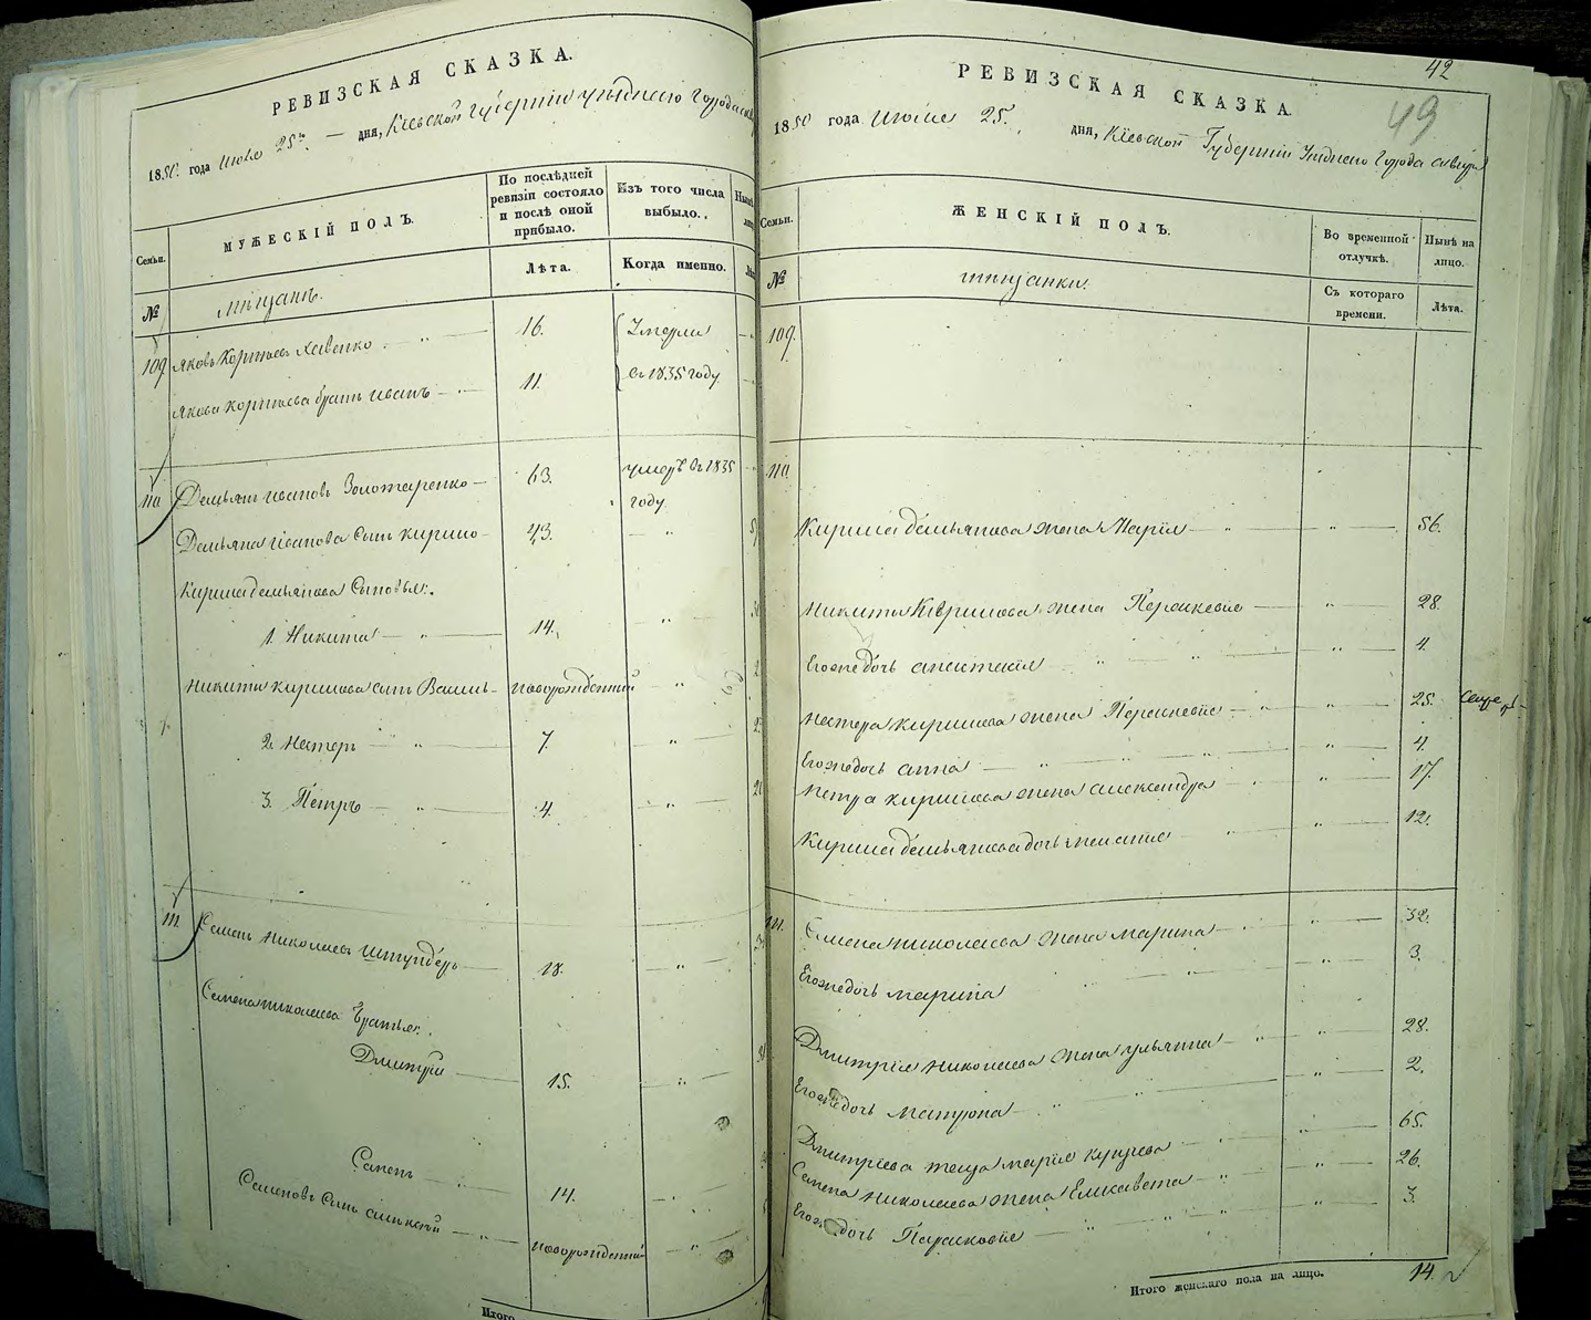 РЕВИЗСКАЯ СКАЗКА.
1850. года Июля 25го — дня, Кіевской Губерніи уѣзднаго города
Семьи.
МУЖЕСКІЙ ПОЛЪ.
По послѣдней ревизіи состояло и послѣ оной прибыло.
Изъ того числа выбыло.
Лѣта.
Когда именно.
№
мѣщанъ.
109 Яковъ Корнѣевъ 16. Умерли
Якова Корнѣева братъ Иванъ — 11. въ 1835 году
110 Демьянъ Ивановъ Золотаренко — 63. умеръ въ 1835 году
Демьяна Иванова сынъ Кирило — 43. — „
Кирила Демьянова сыновья:
1. Никита — „ — 14. „
Никиты Кирилова сынъ Василь — новорожденный — „
2. Нестеръ — „ — 7. „
3. Петръ — „ — 4. „
111. Семенъ Николаевъ Штундеръ — 18. — „
Семена Николаева братья:
Дмитрій — 15. „
Семенъ — 14.
Семеновъ сынъ — „ — новорожденный — „
Итого
42
49
РЕВИЗСКАЯ СКАЗКА.
1850 года Июля 25. дня, Кіевской Губерніи Уѣзднаго Города Сквиры
Семьи.
ЖЕНСКІЙ ПОЛЪ.
Во временной отлучкѣ.
Нынѣ на лицо.
№
мѣщанки.
Съ котораго времени.
Лѣта.
109.
110.
Кирила Демьянова жена Марія — „ — „ — 56.
Никиты Кирилова жена Параскевія — „ 28.
Егоже дочь Анастасія „ „ — „ — 4.
Нестера Кирилова жена Параскевія — „ „ — 25.
Егоже дочь Анна — „ „ „ „ — 4.
Петра Кирилова жена Александра — „ „ — 17.
Кирила Демьянова дочь „ „ — 12.
111. Семена Николаева жена Марина — „ — 32.
Егоже дочь Марина „ „ — 3.
Дмитрія Николаева жена Ульяна — „ „ — 28.
Егоже дочь Матрона — „ „ „ — 2.
Дмитріева теща Марія „ „ — 65.
Семена Николаева жена Елисавета — „ „ — 26.
Егоже дочь Параскевія — „ „ „ „ — 3.
Итого женскаго пола на лицо. 14.